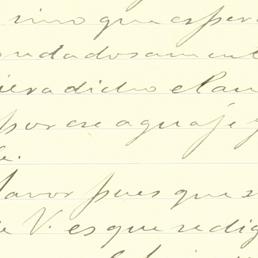 sino que espera
cuidadosamente
iera dicho el au
por ese aguaje y
favor pues que s
e V. es que se dig